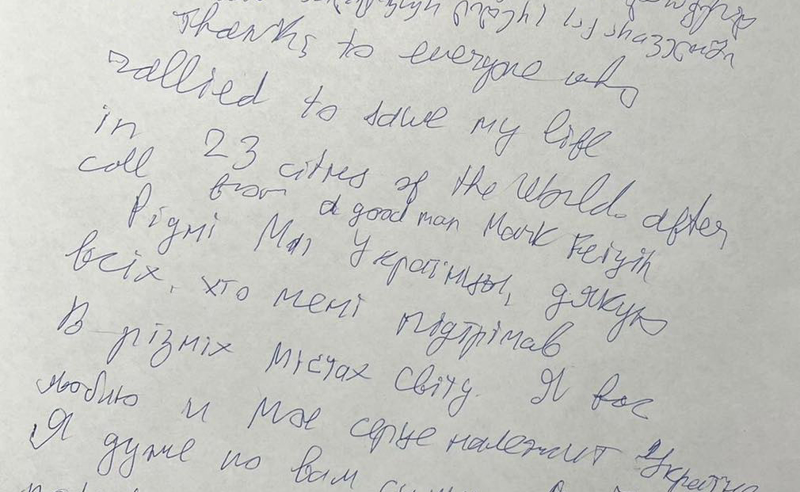 Thanks to everyone who
rallied to save my life
in 23 cities of the World. after
call from a good man Mark Feigin
Рідні Мої Українцы, дякую
всіх, хто мені підтрімав
В різніх містах світу. Я вас
люблю и моє серце належит Україні
Я дуже по вам